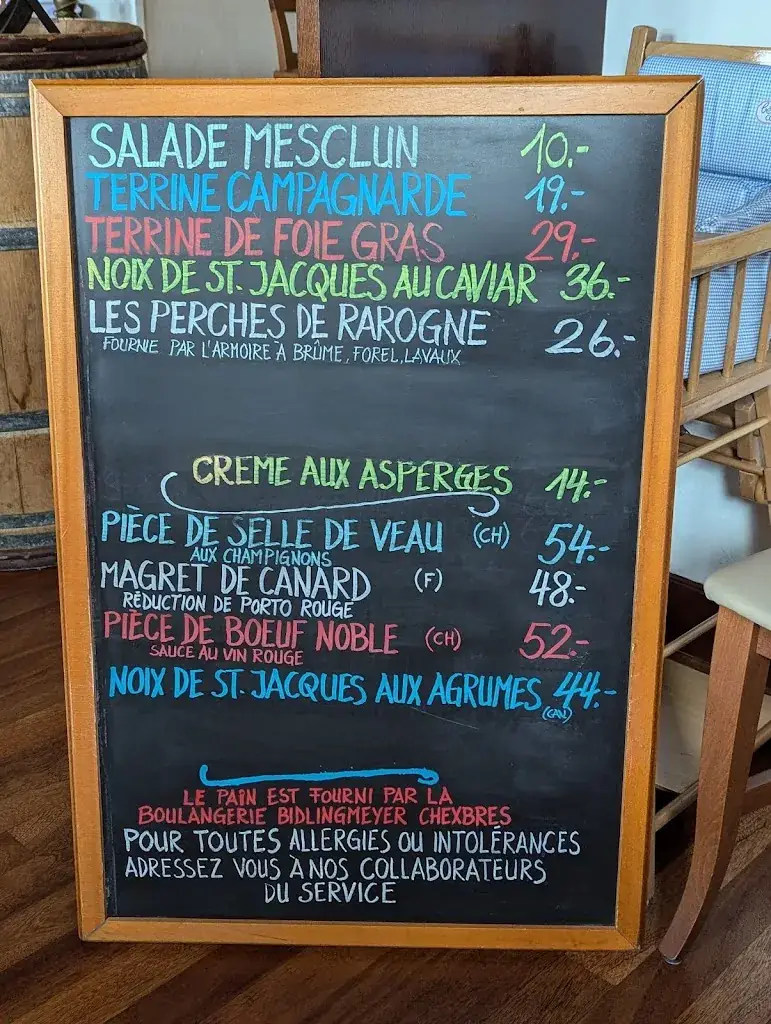 SALADE MESCLUN 10.-
TERRINE CAMPAGNARDE 19.-
TERRINE DE FOIE GRAS 29.-
NOIX DE ST. JACQUES AU CAVIAR 36.-
LES PERCHES DE RAROGNE 26.-
FOURNIE PAR L'ARMOIRE À BRÛME, FOREL, LAVAUX
CREME AUX ASPERGES 14.-
PIÈCE DE SELLE DE VEAU (CH) 54.-
AUX CHAMPIGNONS
MAGRET DE CANARD (F) 48.-
RÉDUCTION DE PORTO ROUGE
PIÈCE DE BOEUF NOBLE (CH) 52.-
SAUCE AU VIN ROUGE
NOIX DE ST. JACQUES AUX AGRUMES 44.-
(CAN)
LE PAIN EST FOURNI PAR LA
BOULANGERIE BIDLINGMEYER CHEXBRES
POUR TOUTES ALLERGIES OU INTOLÉRANCES
ADRESSEZ VOUS À NOS COLLABORATEURS
DU SERVICE